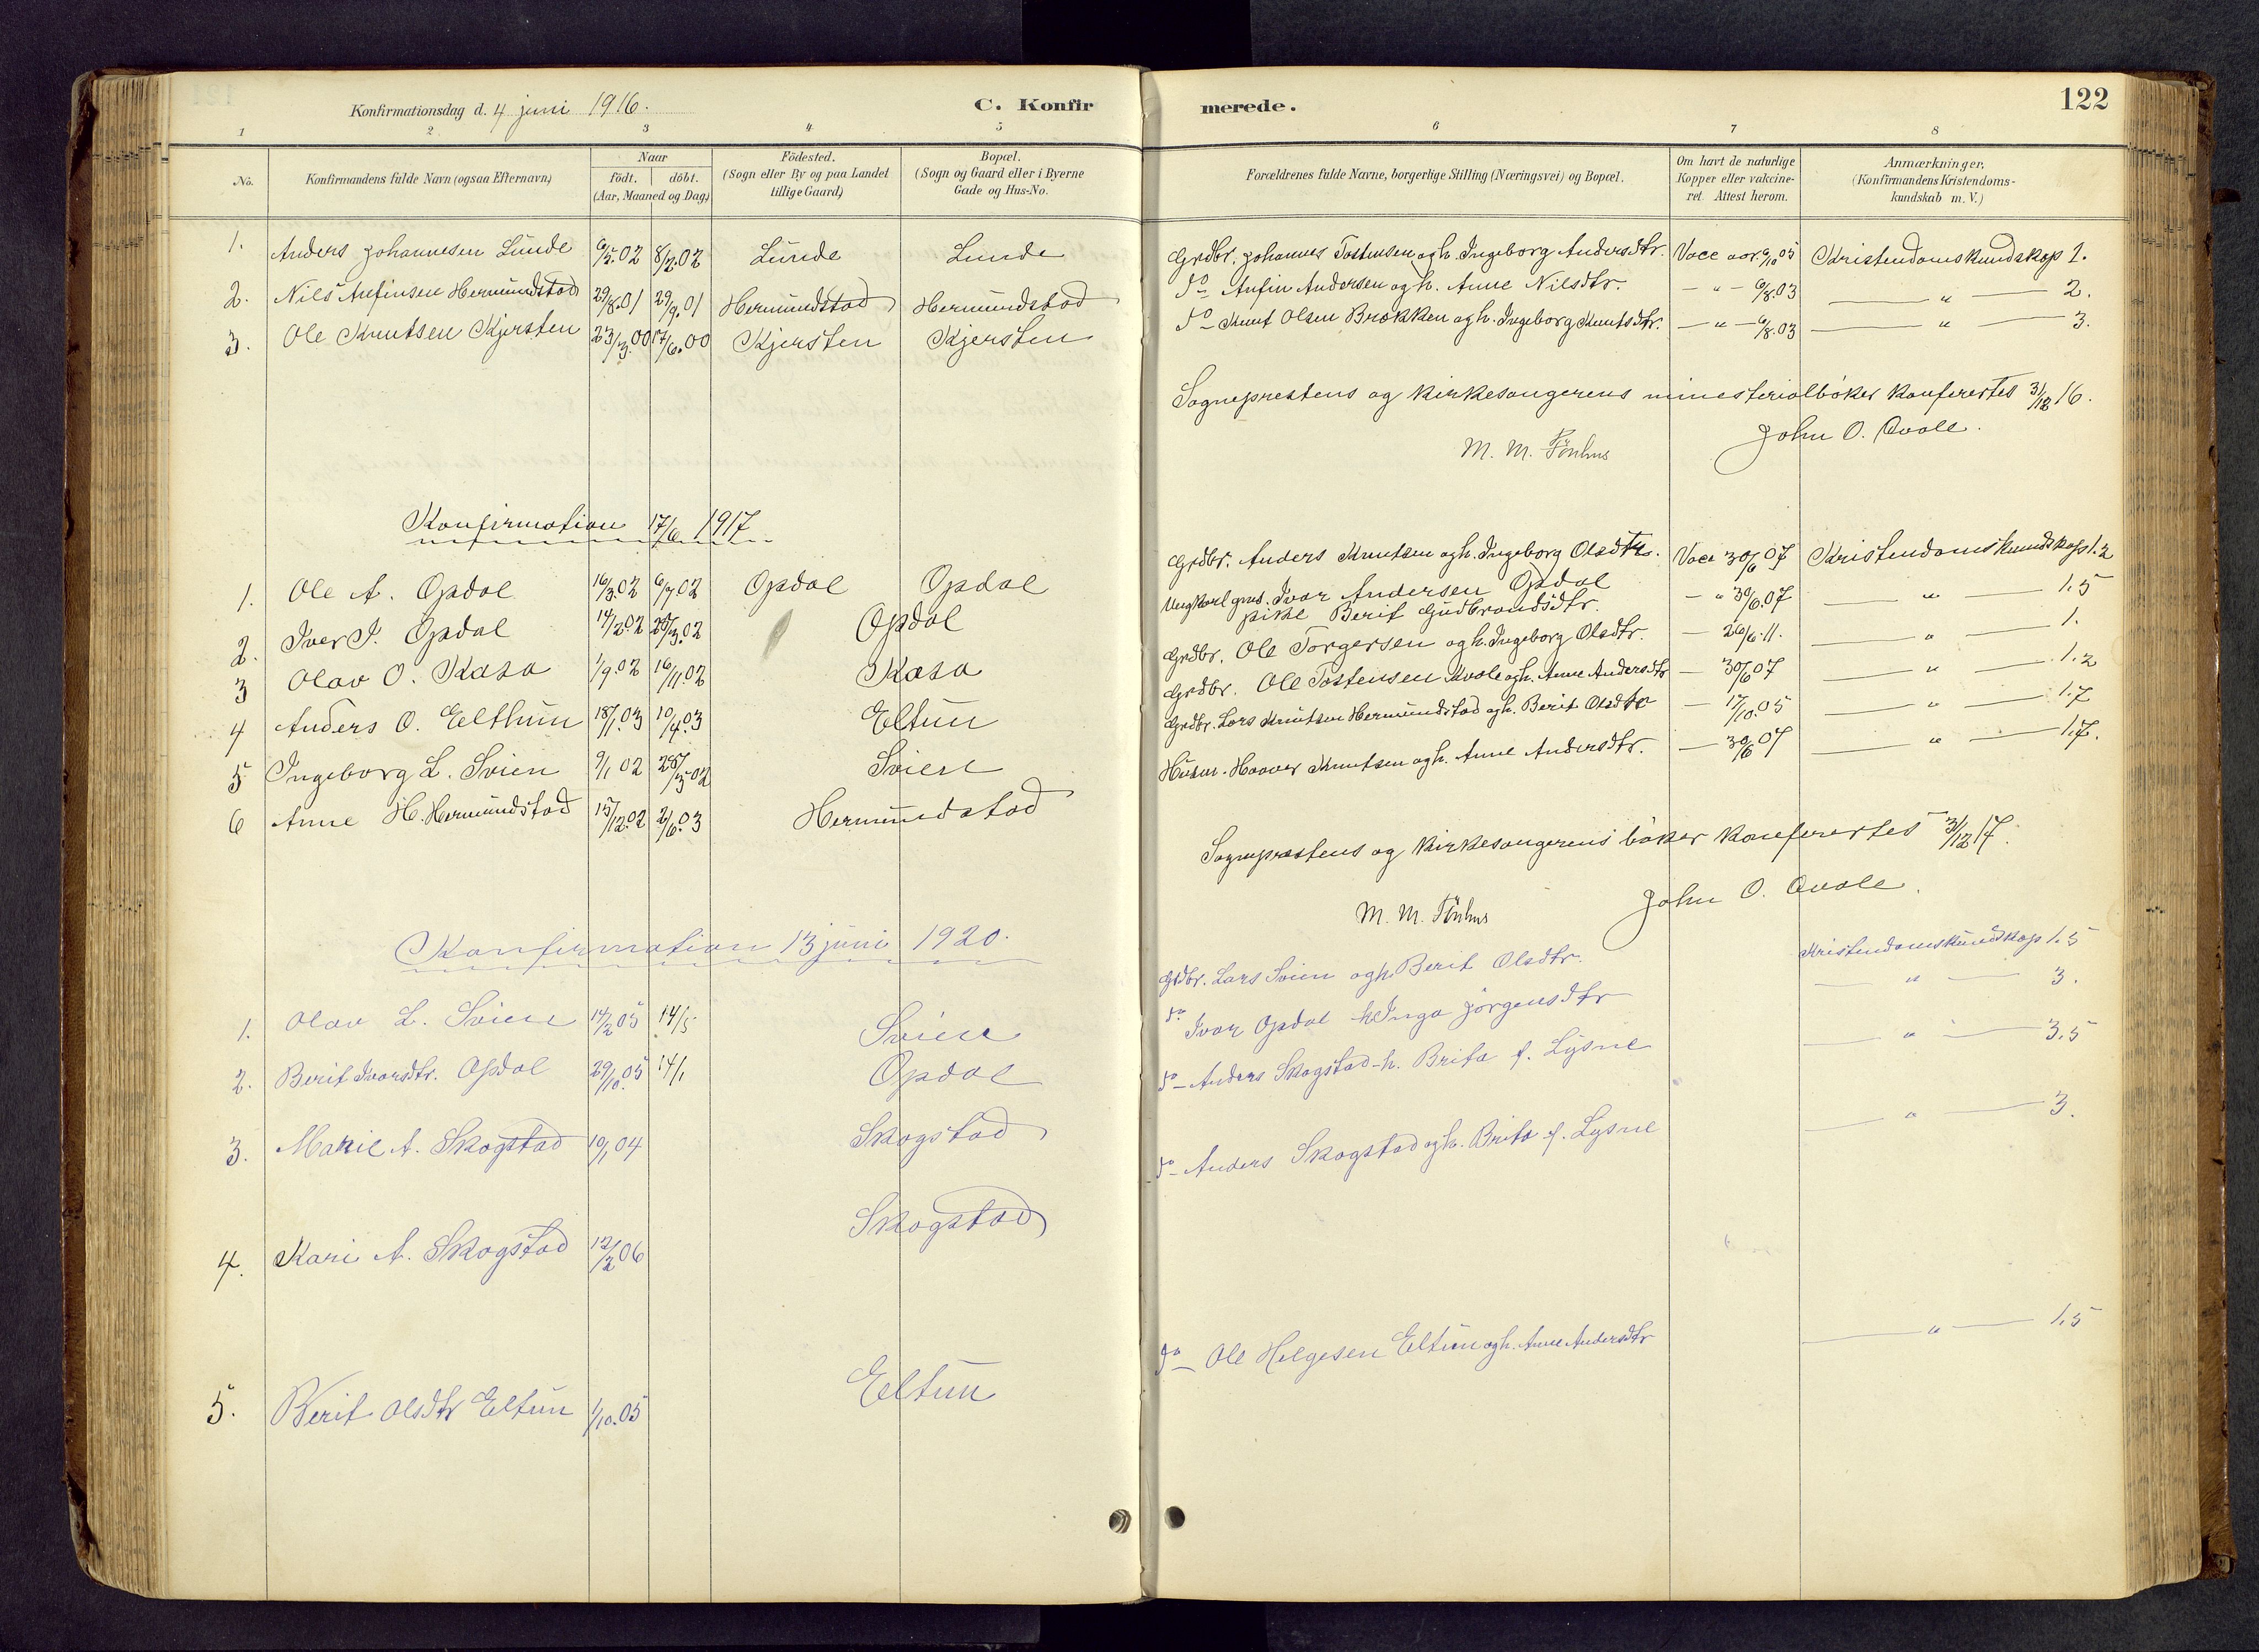 Konfirmationsdag d. 4 juni 1916.
C. Konfirmerede.
122
1 2 3 4 5 6 7 8
No.
Konfirmandens fulde Navn (ogsaa Efternavn)
Naar
födt. döbt.
(Aar, Maaned og Dag)
Födested.
(Sogn eller By og paa Landet
tillige Gaard)
Bopæl.
(Sogn og Gaard eller i Byerne
Gade og Hus-No.
Forældrenes fulde Navne, borgerlige Stilling (Næringsvei) og Bopæl.
Om havt de naturlige
Kopper eller vakcine-
ret. Attest herom.
Anmærkninger.
(Konfirmandens Kristendoms-
kundskab m. V.)
1. Anders Johannesen Lunde 6/5.02 8/2.02 Lunde Lunde Grdbr. Johannes Tostensen og h. Ingeborg Andersdtr. Vacc 6/10 05 Kristendomskundskap 1.
2. Nils Anfinsen Hermundstad 29/8.01 29/9.01 Hermundstad Hermundstad do Anfin Andersen og h. Anne Nilsdtr. — " — 6/8.03 — " — 2.
3. Ole Knutsen Kjersten 23/3.00 17/6.00 Kjersten Kjersten do Knut Olsen Brokken og h. Ingeborg Knutsdtr. — " — 6/8.03 — " — 3.
Sogneprestens og kirkesangerens ministerialbøker konferertes 31/12 16.
M. M. Tönhus John O. Qvale.
Konfirmation 17/6 1917
1. Ole A. Opdal 16/3.02 6/7.02 Opdal Opdal Grdbr. Anders Knutsen og h. Ingeborg Olsdtr. Vacc 30/6 07 Kristendomskundskap 1.2
2. Iver I. Opdal 14/2.02 28/3.02 Opdal Ungkarl grus. Ivar Andersen Opdal
pike Berit Gudbrandsdtr. — " 30/6.07 — " — 1.5
3 Olav O. Kasa 1/9.02 16/11.02 Kasa Grdbr. Ole Torgersen og h. Ingeborg Olsdtr. — 26/6.11. — " — 1.
4 Anders O. Eelthun 18/1.03 10/4.03 Eltun Grdbr. Ole Tostensen Kvale og h. Anne Andersdtr — 30/6 07 — " — 1.2
5 Ingeborg L. Svien 9/1 02 28/3 02 Svien Grdbr. Lars Knutsen Hermundstad og h. Berit Olsdtr — 17/10.05 — " — 1.7
6 Anne H. Hermundstad 15/12.02 2/6.03 Hermundstad Husm. Haaver Knutsen og h. Anne Andersdtr. — 30/6 07 — " — 1.7.
Sogneprestens og kirkesangerens bøker konferertes 31/12 17.
M. M. Tönhus John O. Qvale.
Konfirmation 13 juni 1920.
1. Olav L. Svien 14/2 05 14/5 Svien Grdbr. Lars Svien og h. Berit Olsdtr. Kristendomskundskap 1.5
2. Berit Ivarsdtr. Opdal 29/10.05 14/1 Opdal do Ivar Opdal h. Inga Jörgensdtr — " — 3.
3. Marie A. Skogstad 10/1 04 Skogstad do — Anders Skogstad — h. Brita f. Lysne — " — 3.5
4. Kari A. Skogstad 12/2 06 Skogstad do — Anders Skogstad og h. Brita f. Lysne — " — 3.
5. Berit Olsdtr Eltun 1/10.05 Eltun do — Ole Helgesen Eltun og h. Anne Andersdtr — " — 1.5